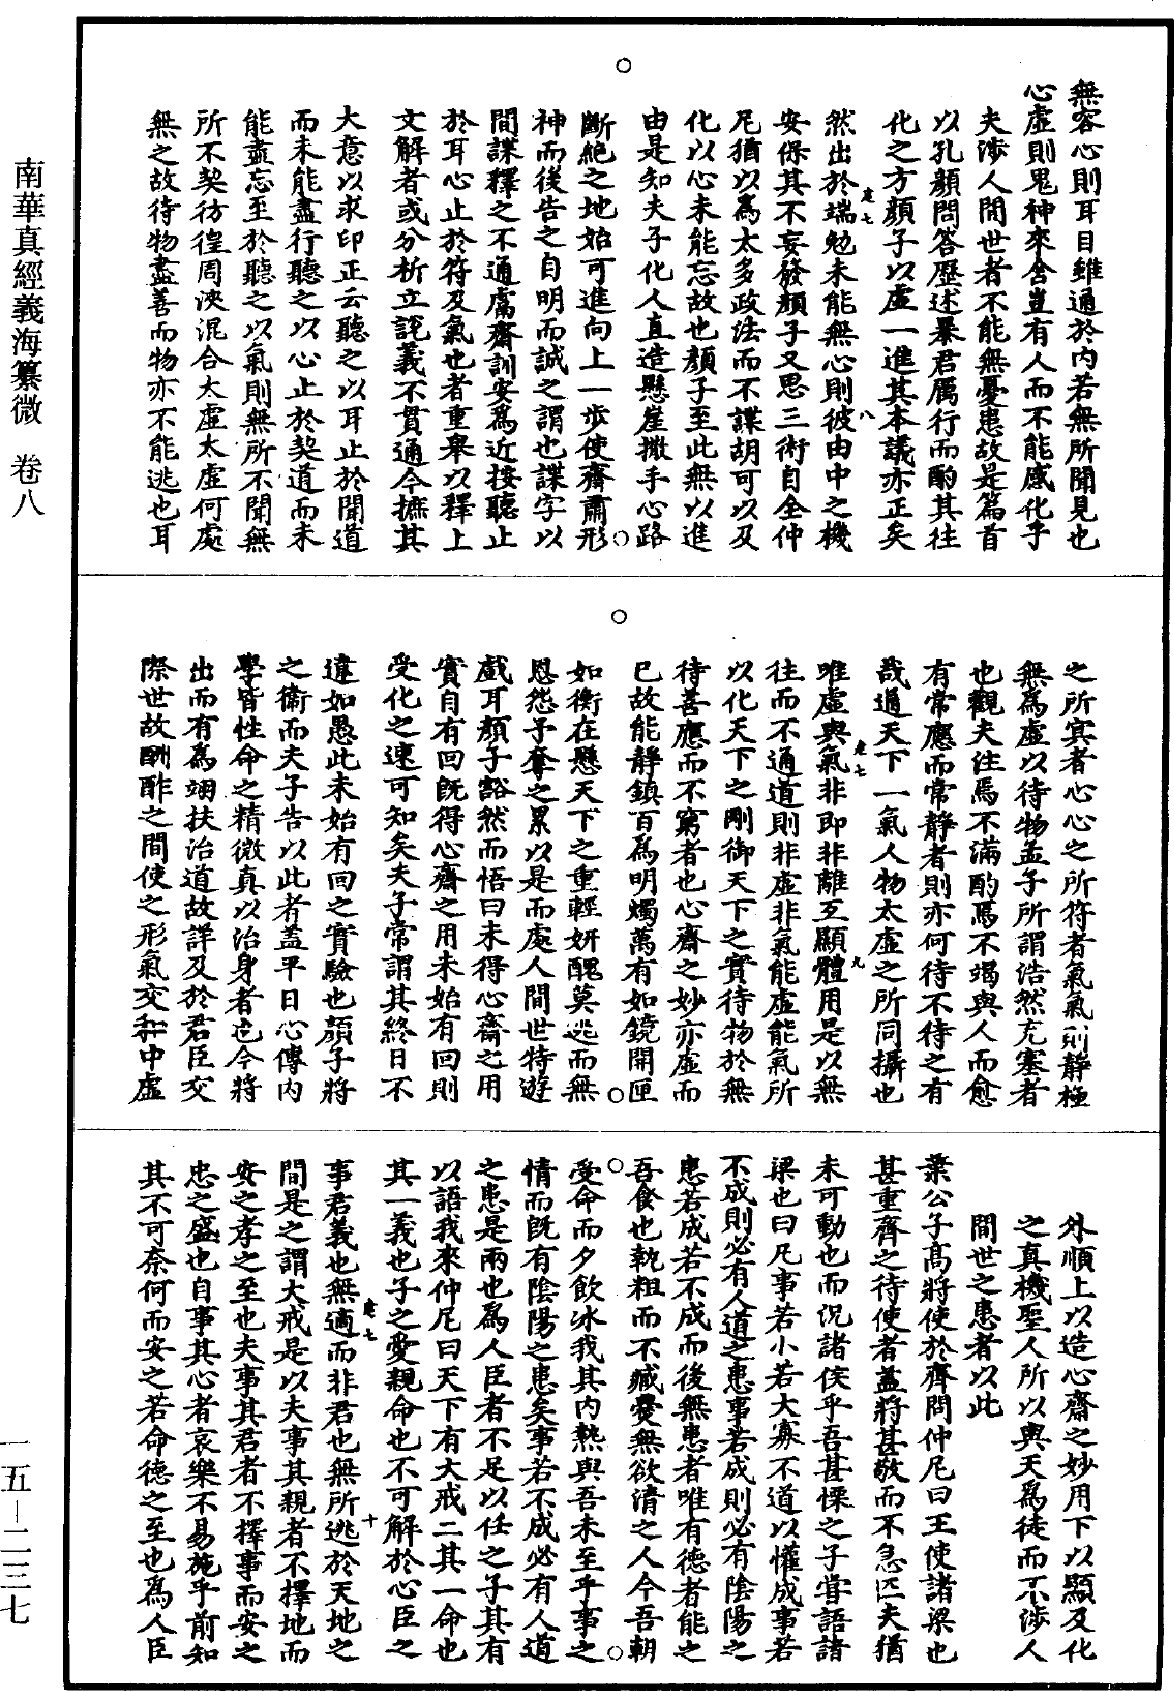 無容心則耳目雖通於內若無所聞見也
心虛則鬼神來舍豈有人而不能感化乎
夫涉人間世者不能無憂患故是篇首
以孔顏問答歷述暴君厲行而酌其往
化之方顏子以虛一進其本議亦正矣
然出於端勉未能無心則彼由中之機
安保其不妄發顏子又思三術自全仲
尼猶以為太多政法而不諜胡可以及
化以心未能忘故也顏子至此無以進
由是知夫子化人直造懸崖撒手心路
斷絕之地始可進向上一步使齋肅形
神而後告之自明而誠之謂也諜字以
間諜釋之不通鬳齋訓安為近按聽止
於耳心止於符及氣也者重舉以釋上
文解者或分析立說義不貫通今摭其
大意以求印正云聽之以耳止於聞道
而未能盡行聽之以心止於契道而未
能盡忘至於聽之以氣則無所不聞無
所不契彷徨周浹混合太虛太虛何處
無之故待物盡善而物亦不能逃也耳
之所賓者心心之所符者氣氣則靜極
無為虛以待物孟子所謂浩然充塞者
也觀夫注焉不滿酌焉不竭與人而愈
有常應而常靜者則亦何待不待之有
哉通天下一氣人物太虛之所同攝也
唯虛與氣非即非離互顯體用是以無
往而不通道則非虛非氣能虛能氣所
以化天下之剛御天下之實待物於無
待善應而不窮者也心齋之妙亦虛而
已故能靜鎮百為明燭萬有如鏡開匣
如衡在懸天下之重輕妍醜莫逃而無
恩怨予奪之累以是而處人間世特遊
戲耳顏子豁然而悟曰未得心齋之用
實自有回既得心齋之用未始有回則
受化之速可知矣夫子常謂其終日不
違如愚此未始有回之實驗也顏子將
之衞而夫子告以此者蓋平日心傳內
學皆性命之精微真以治身者也今將
出而有為翊扶治道故詳及於君臣交
際世故酬酢之間使之形氣交和中虛
外順上以造心齋之妙用下以顯及化
之真機聖人所以與天為徒而不涉人
間世之患者以此
葉公子高將使於齊問仲尼曰王使諸梁也
甚重齊之待使者蓋將甚敬而不急匹夫猶
未可動也而況諸侯乎吾甚慄之子嘗語諸
梁也曰凡事若小若大寡不道以懽成事若
不成則必有人道之患事若成則必有陰陽之
患若成若不成而後無患者唯有德者能之
吾食也執粗而不臧爨無欲清之人今吾朝
受命而夕飲冰我其內熱與吾未至乎事之
情而既有陰陽之患矣事若不成必有人道
之患是兩也為人臣者不足以任之子其有
以語我來仲尼曰天下有大戒二其一命也
其一義也子之愛親命也不可解於心臣之
事君義也無適而非君也無所逃於天地之
間是之謂大戒是以夫事其親者不擇地而
安之孝之至也夫事其君者不擇事而安之
忠之盛也自事其心者哀樂不易施乎前知
其不可奈何而安之若命德之至也為人臣
南華真經義海纂微 卷八
一五－二三七